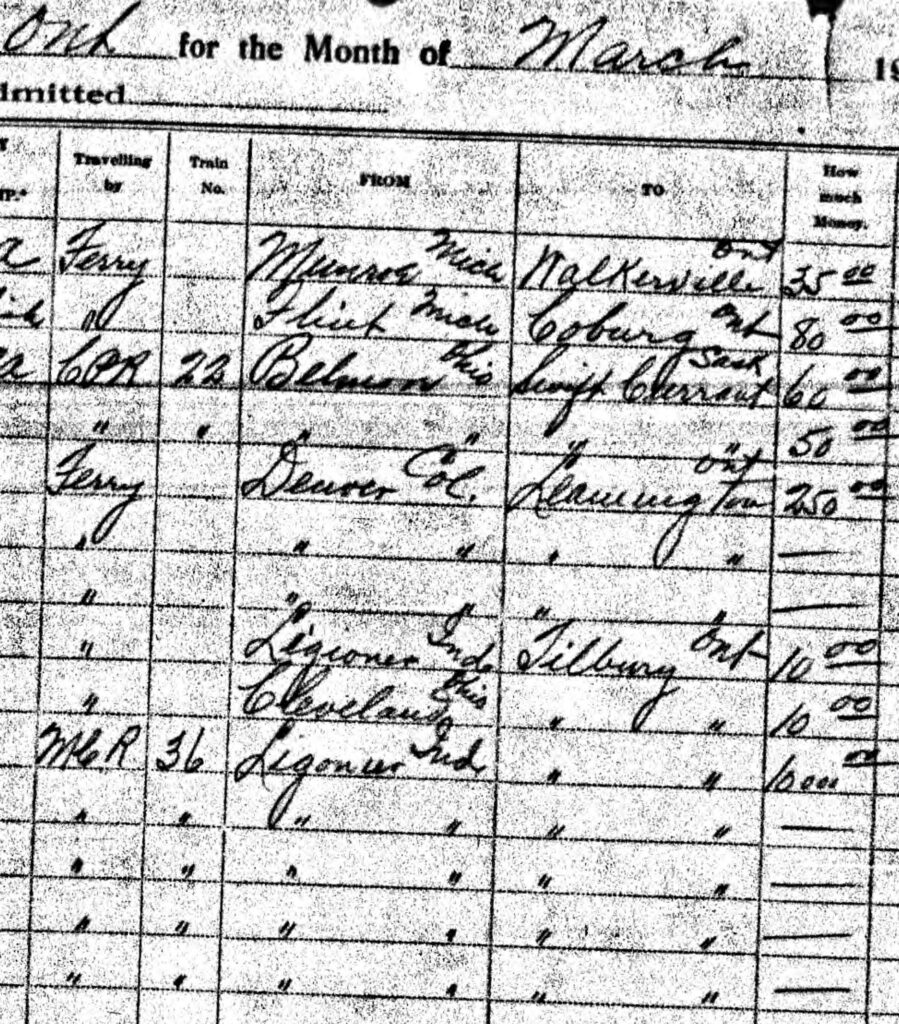 Ont for the Month of March 19
dmitted
Travelling by Train No. FROM TO How much Money.
a Ferry Munroe Mich Walkerville Ont 35 00
ish " Flint Mich Coburg Ont 80 00
a CPR 22 Belmon Ohio Swift Currant Sask 60 00
" " " " " " 50 00
Ferry Denver Col. Leamington Ont 250 00
" " " " " —
" " " " " —
" Ligioner Ind Tilbury Ont 10 00
" Cleveland Ohio " " 10 00
MCR 36 Ligonier Ind " " 1000 00
" " " " " " —
" " " " " " —
" " " " " " —
" " " " " " —